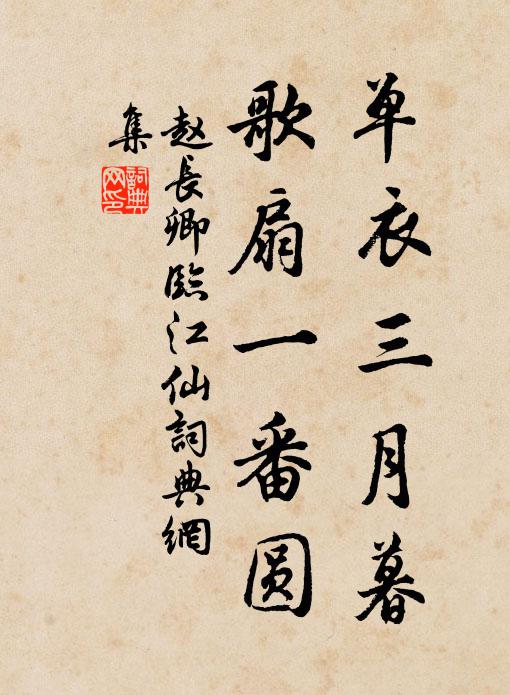 单衣三月暮
歌扇一番圆
赵长卿临江仙詞典網
集
詞典网印